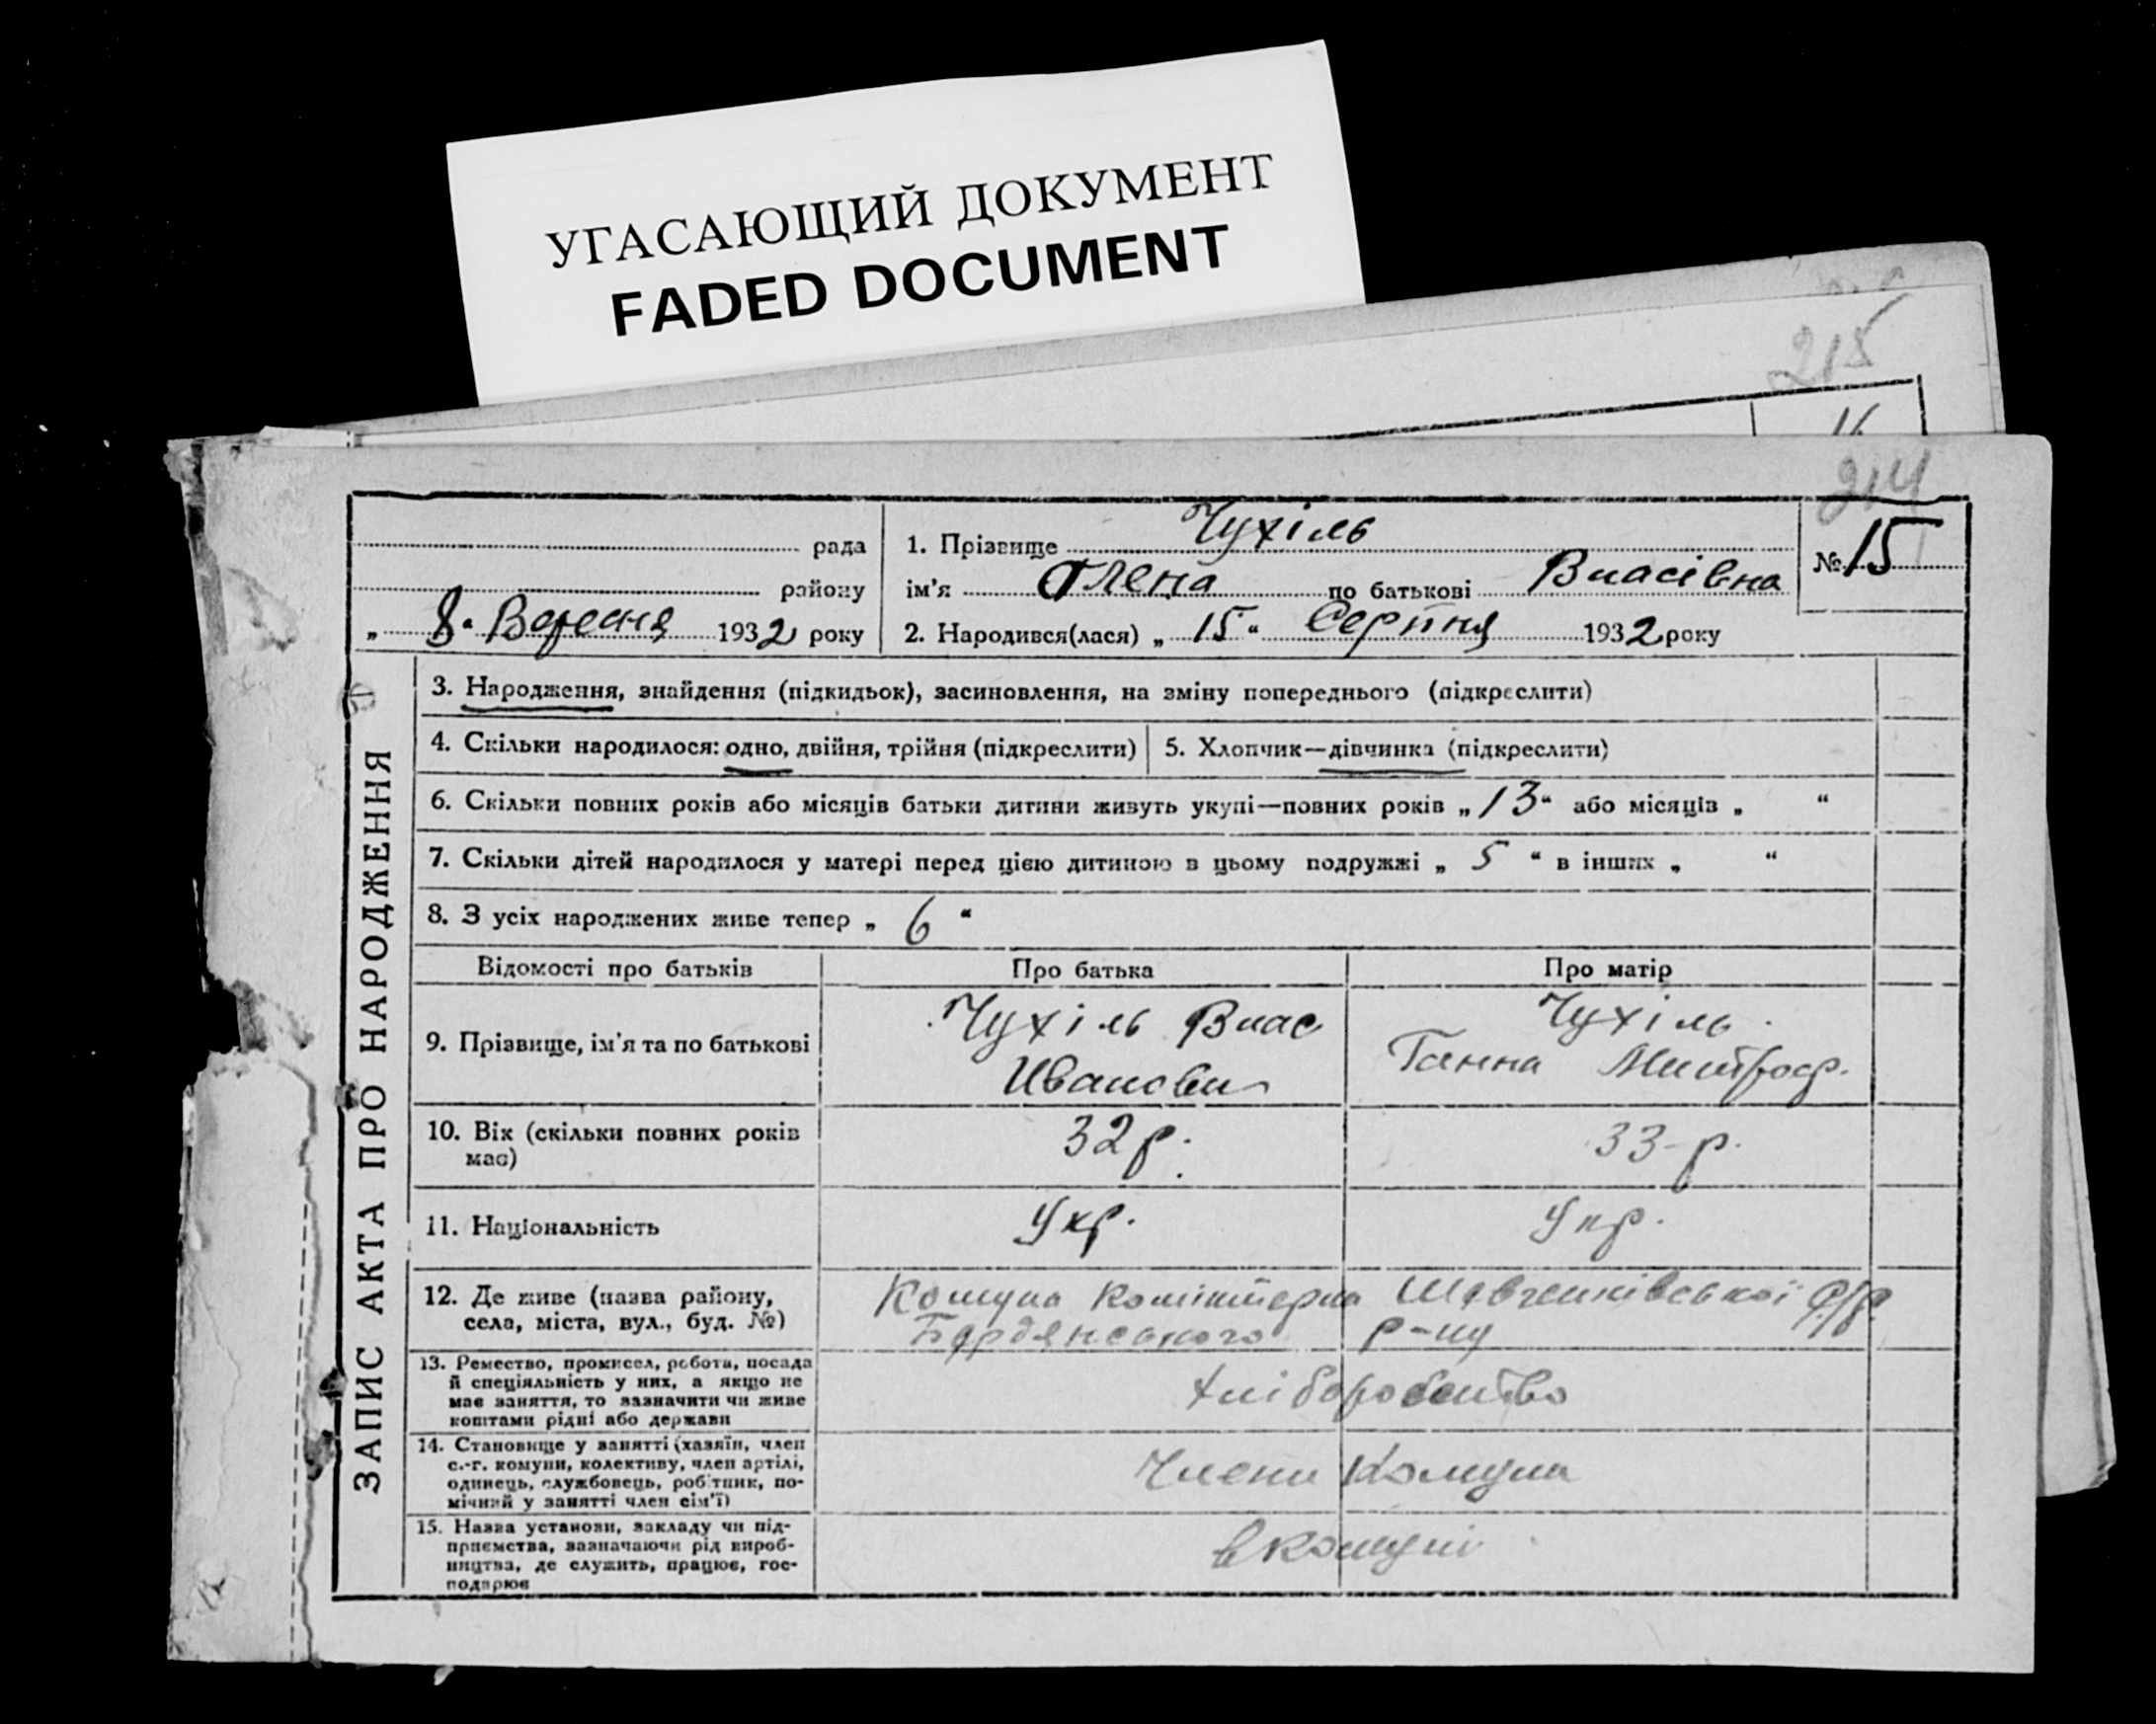 УГАСАЮЩИЙ ДОКУМЕНТ
FADED DOCUMENT
215
16
214
рада
району
„ 8 " Вересня 1932 року
1. Прізвище Чухіль
ім'я Олена по батькові Власівна
2. Народився(лася) „ 15 " Серпня 1932 року
№ 15
ЗАПИС АКТА ПРО НАРОДЖЕННЯ
3. Народження, знайдення (підкидьок), засиновлення, на зміну попереднього (підкреслити)
4. Скільки народилося: одно, двійня, трійня (підкреслити) 5. Хлопчик—дівчинка (підкреслити)
6. Скільки повних років або місяців батьки дитини живуть укупі—повних років „ 13 " або місяців „ "
7. Скільки дітей народилося у матері перед цією дитиною в цьому подружжі „ 5 " в інших „ "
8. З усіх народжених живе тепер „ 6 "
Відомості про батьків Про батька Про матір
9. Прізвище, ім'я та по батькові
Чухіль Влас
Иванови
Чухіль
Ганна Митроф.
10. Вік (скільки повних років
має)
32 р. 33-р.
11. Національність Укр. Укр.
12. Де живе (назва району,
села, міста, вул., буд. №)
Комуна Комінтерна Шевченківської с/р
Бердянського р-ну
13. Ремество, промисел, робота, посада
й спеціяльність у них, а якщо не
має заняття, то зазначити чи живе
коштами рідні або держави
хліборобство
14. Становище у занятті (хазяїн, член
с.-г. комуни, колективу, член артілі,
одинець, службовець, робітник, по-
мічний у занятті член сім'ї)
Члени Комуни
15. Назва установи, закладу чи під-
приємства, зазначаючи рід вироб-
ництва, де служить, працює, гос-
подарює
в комуні